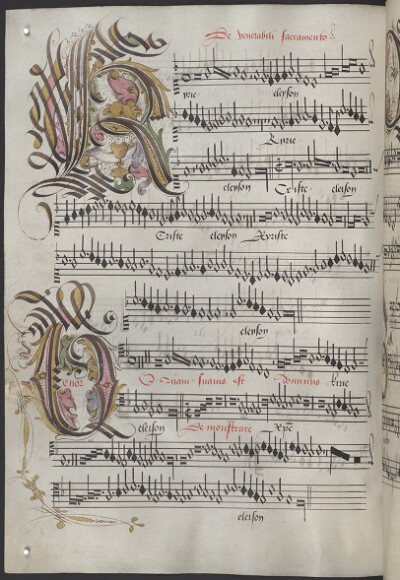 De venerabili sacramento
yrie eleyson
Kyrie
eleyson Criste eleyson
Criste eleyson Xpriste
eleyson
Tenor O quam suavis est dominus kyrie
eleison Demonstrare xpe
eleison